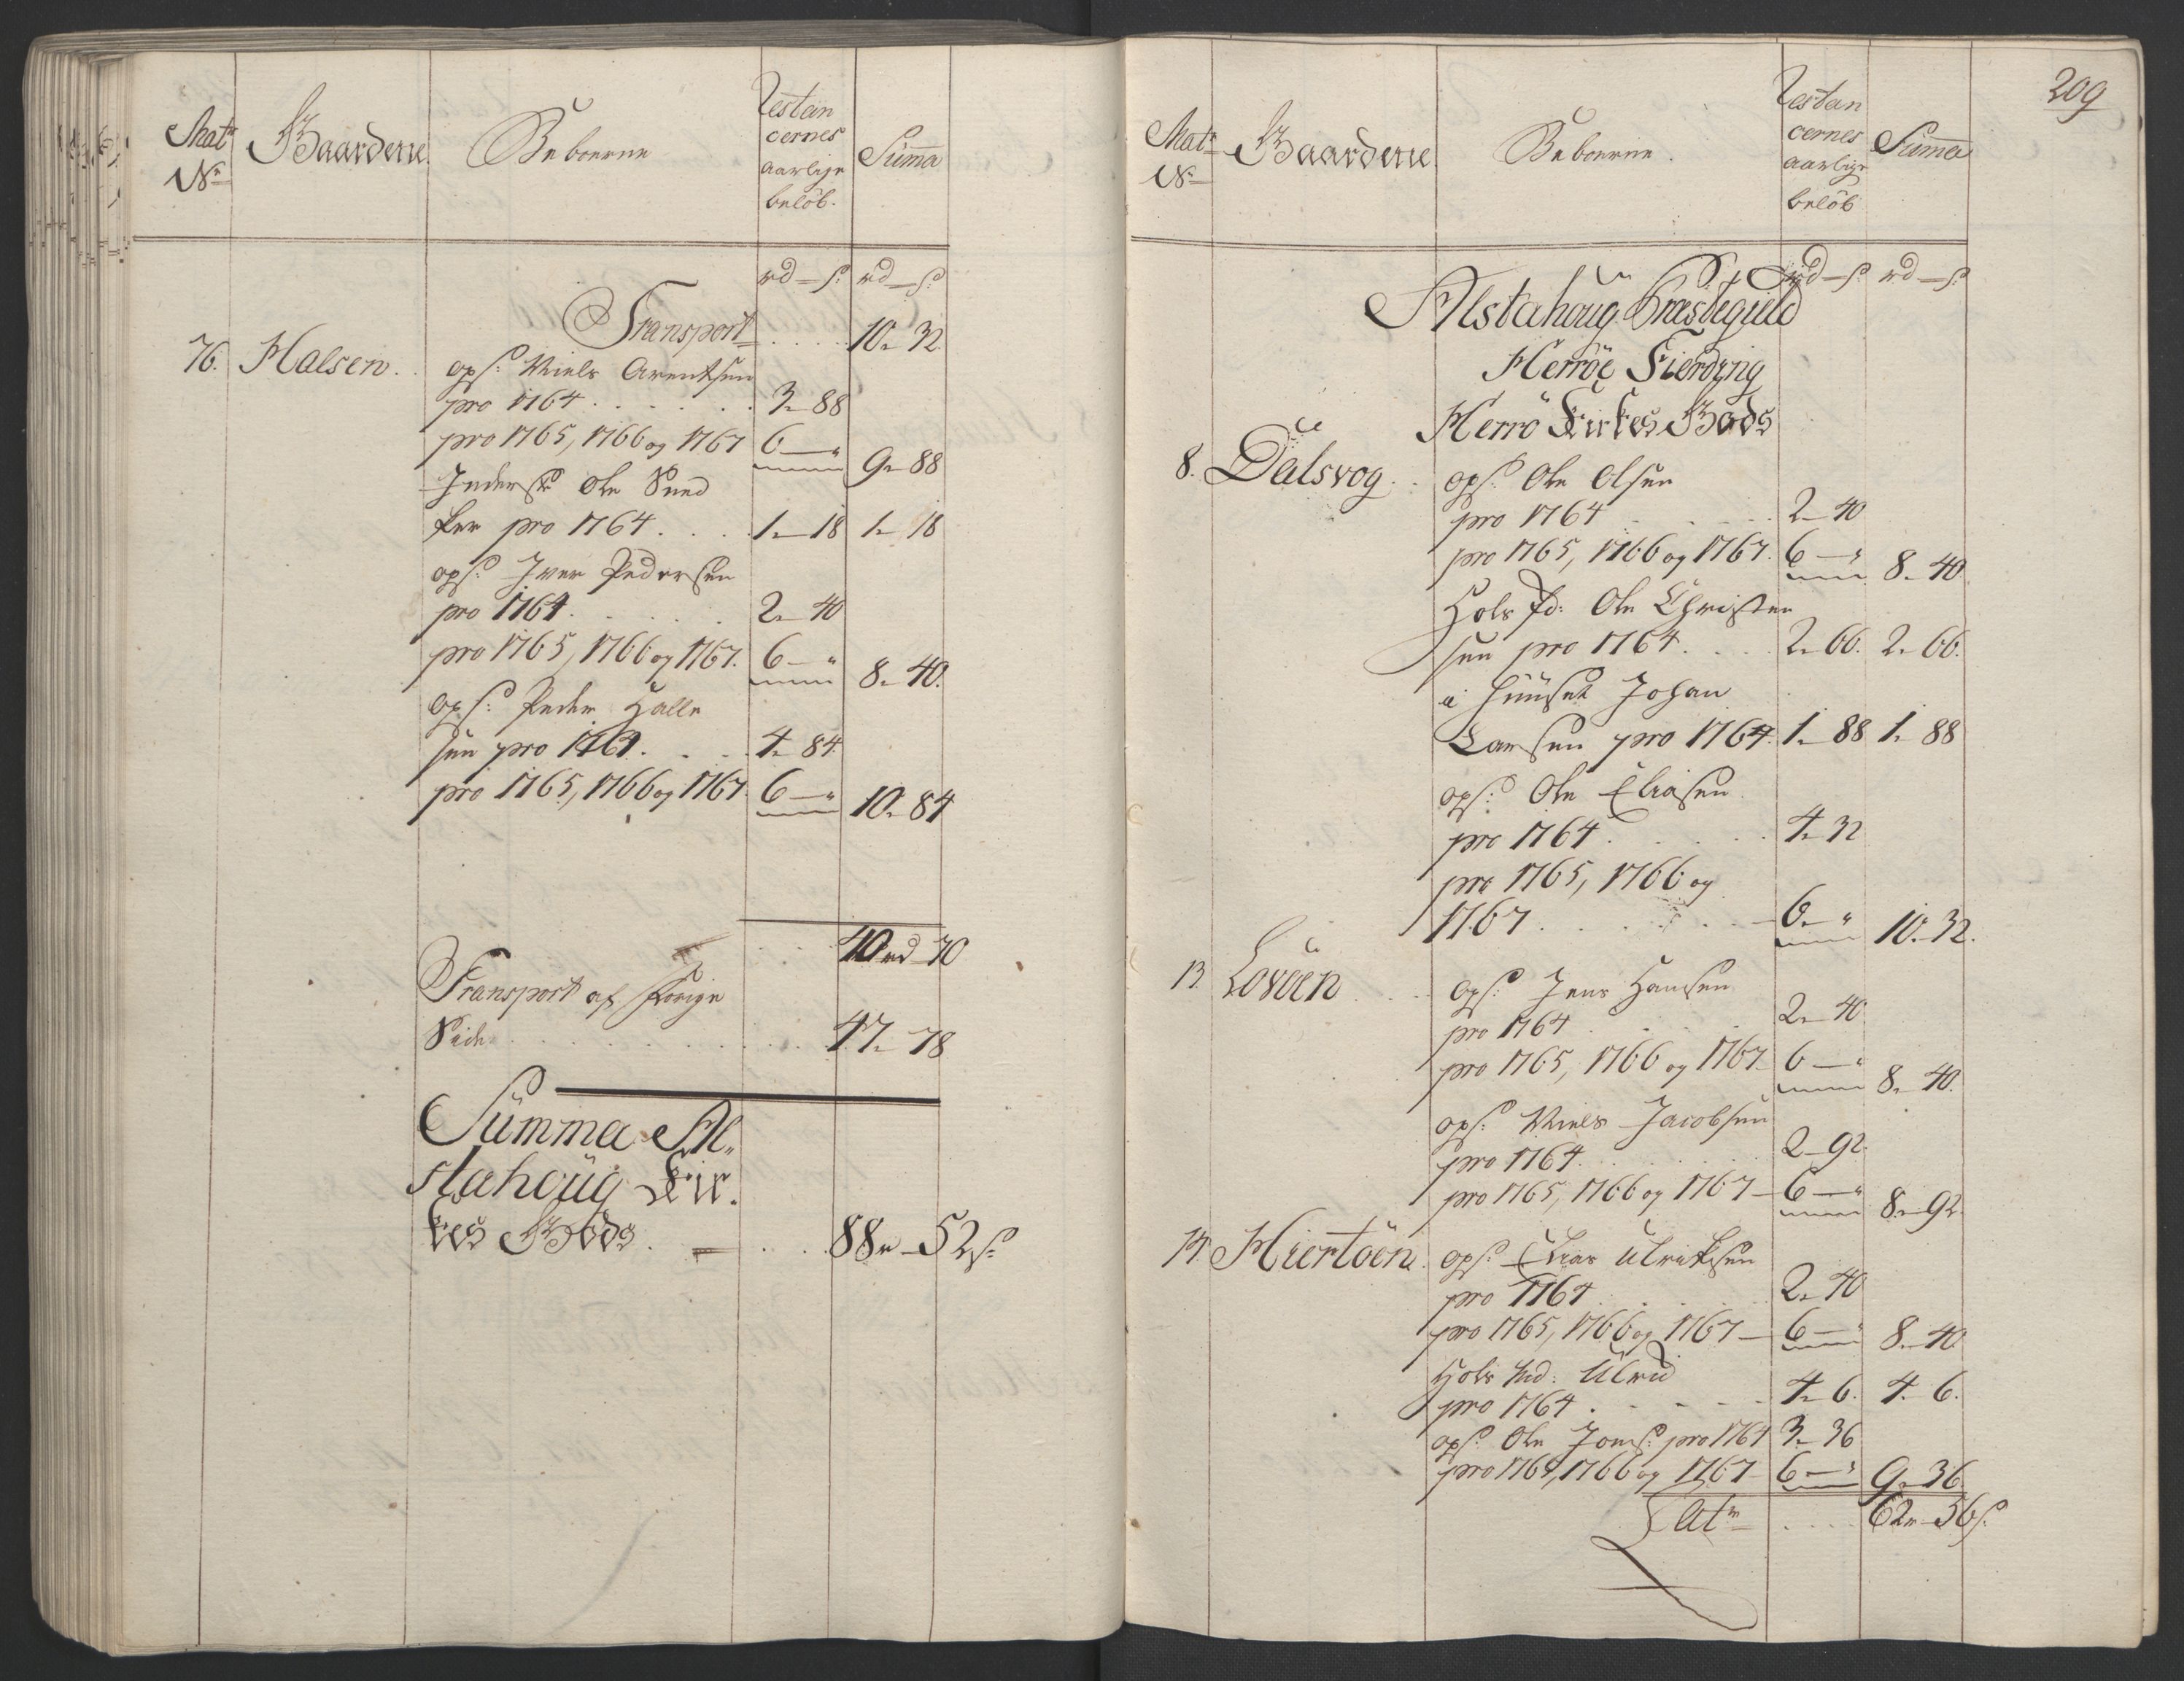 Matr
No
Gaardene
Beboerne
Restan
cernes
aarlige
beløb.
Summa
rd – s: rd – s:
Transport . . . . 10 - 32
76. Halsen . ops: Niels Arentsen
pro 1764 . . . . . . 3 - 88
pro 1765, 1766 og 1767 6 – " 9 - 88
Inderst Ole
pro 1764 . . . . 1 - 18 1 - 18
ops: Iver Pedersen
pro 1764 . . . . . 2 - 40
pro 1765, 1766 og 1767. 6 – " 8 - 40.
ops: Peder Halle
sen pro 1764. . . . 4 - 84
pro 1765, 1766 og 1767. 6 – " 10 - 84
. . . 40 rd 70
Transport af forrige
Side . . . . . . . . . 47 - 78
Summa Al-
stahoug Kir-
kes Gods . – . . . 88 r - 52 s:
209
Matr
No
Gaardene
Beboerne.
Restan
cernes
aarlige
beløb
Summa
rd – s: rd – s:
Alstahoug Præstegield
Herröe Fierding
Herrö Kirkes Gods
8. Dalsvog . . ops: Ole Olsen
pro 1764 . . . . . 2 - 40
pro 1765, 1766 og 1767. 6 – " 8 - 40
Hols fd: Ole Christen
sen pro 1764. . . . 2 - 66. 2 - 66.
i huuset Johan
Larsen pro 1764. 1 - 88 1 - 88
ops: Ole Eliasen
pro 1764 . . . . . 4 - 32
pro 1765, 1766 og
1767 . . . . . . – 6 - " 10 - 32.
13. Lovöen . . . ops: Jens Hansen
pro 1764 . . . . . 2 - 40
pro 1765, 1766 og 1767 6 – " 8 - 40.
ops: Niels Jacobsen
pro 1764. . . . . . 2 - 92.
pro 1765, 1766 og 1767 – 6 – " 8 - 92.
14. Hiertöen . ops: Elias Ulriksen
pro 1764 . . . . . 2 - 40
pro 1765, 1766 og 1767 – 6 – " 8 - 40
Hols fd: Ulrid
pro 1764 . . . . . 4 - 6. 4 - 6.
ops: Ole Jons: pro 1764 3 - 36
pro 1765, 1766 og 1767 6 – " 9 - 36
Latr . . . . 62 r - 56 s.